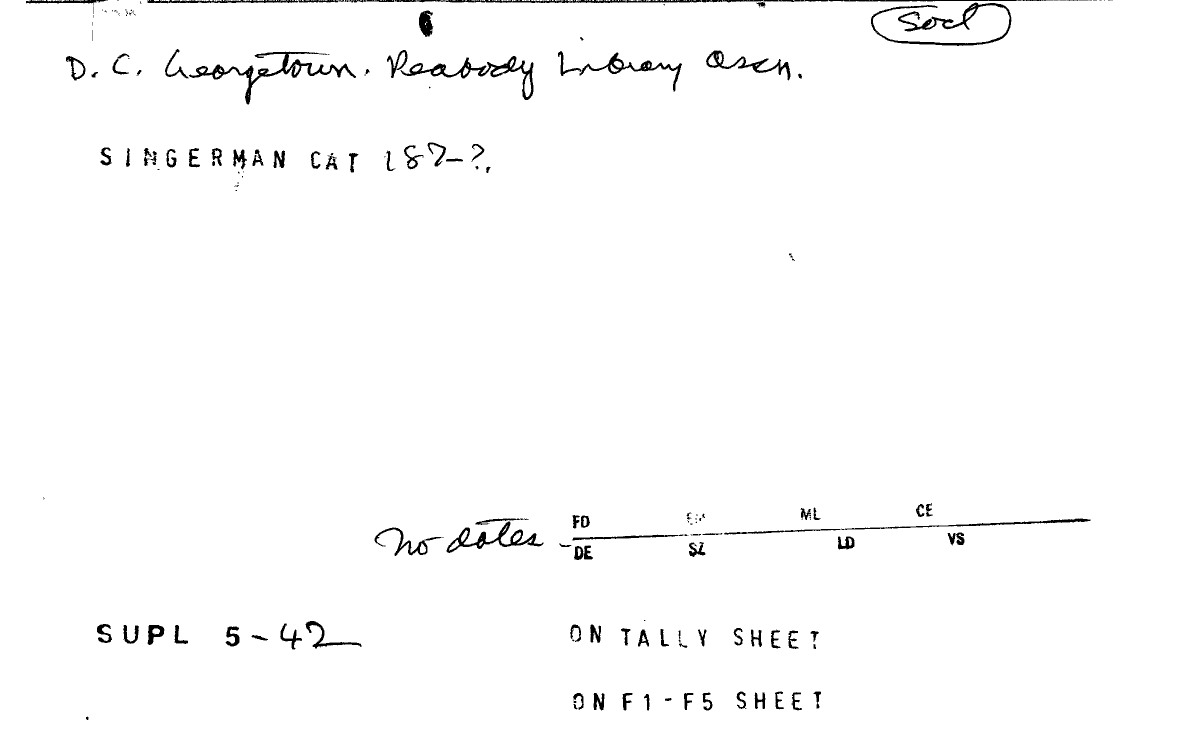 Socl
D. C. Georgetown. Peabody Library Assn.
SINGERMAN CAT 187-?.
FD EM ML CE
No dates - DE SZ LD VS
SUPL 5-42
ON TALLY SHEET
ON F1-F5 SHEET